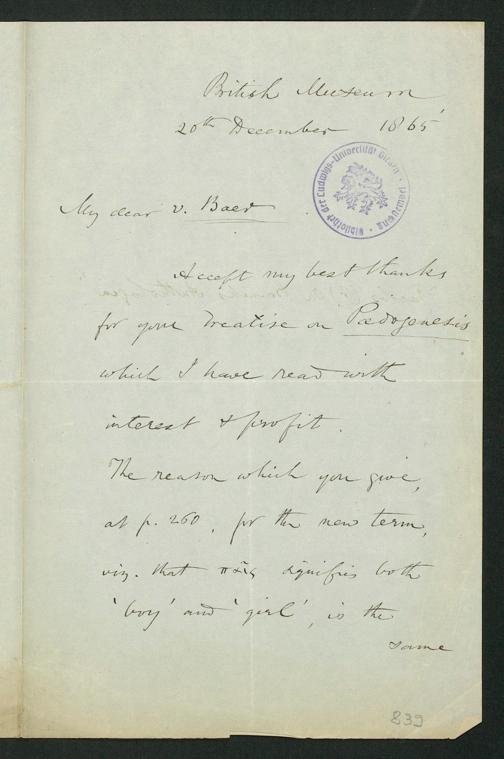 British Museum
20th December 1865
Bibliothek der Ludwigs-Universität Giessen
My dear v. Baer
Accept my best thanks
for your Treatise on Pædogenesis
which I have read with
interest & profit.
The reason which you give,
at p. 260, for the new term,
viz. that παῖς signifies both
'boy' and 'girl', is the
same
839